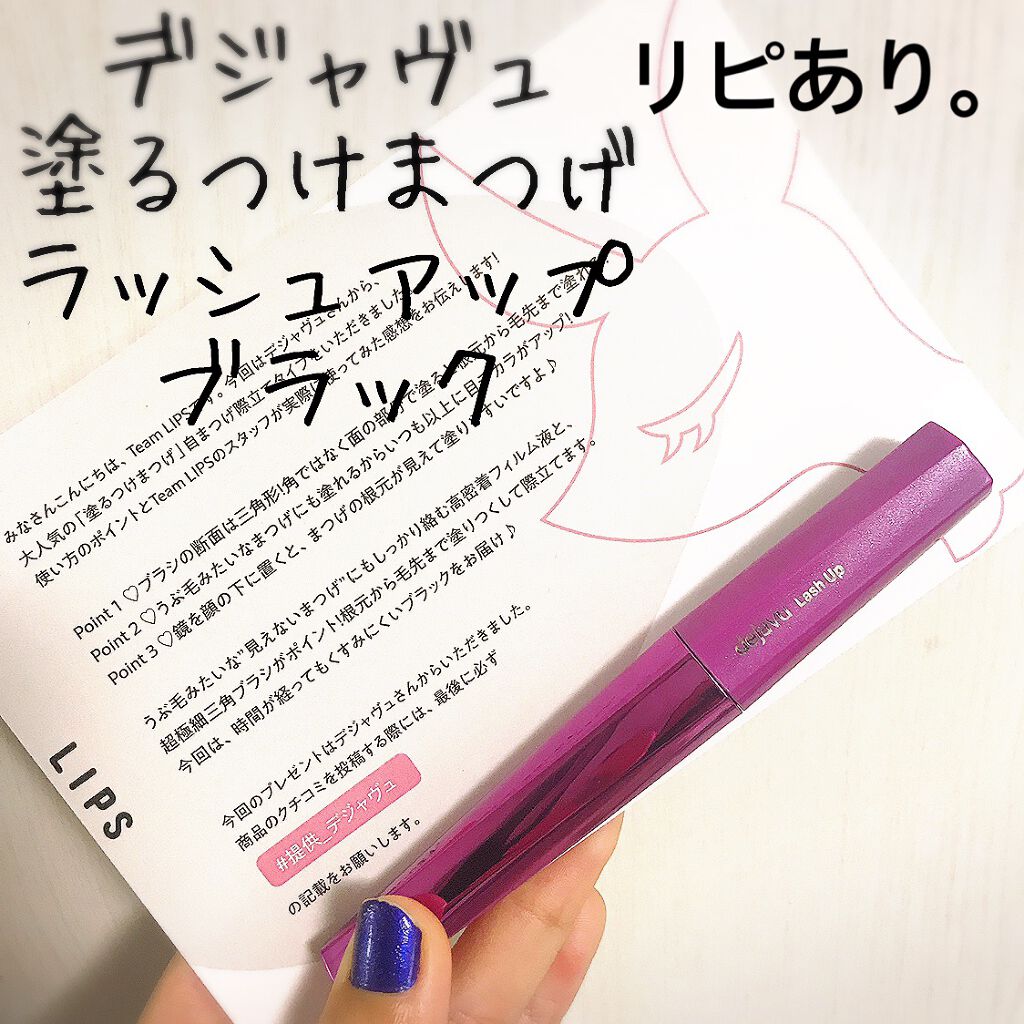 デジャヴュ
リピあり。
塗るつけまつげ
ラッシュアップ
ブラック
みなさんこんにちは、Team LIPSです。今回はデジャヴュさんから、
大人気の「塗るつけまつげ」自まつげ際立てタイプをいただきました。
使い方のポイントとTeam LIPSのスタッフが実際に使ってみた感想をお伝えします!
Point 1 ♡ブラシの断面は三角形!角ではなく面の部分で塗ると根元から毛先まで塗れる
Point 2 ♡うぶ毛みたいなまつげにも塗れるからいつも以上に目ヂカラがアップ!
Point 3 ♡鏡を顔の下に置くと、まつげの根元が見えて塗りやすいですよ♪
うぶ毛みたいな"見えないまつげ"にもしっかり絡む高密着フィルム液と、
超極細三角ブラシがポイント!根元から毛先まで塗りつくして際立てます。
今回は、時間が経ってもくすみにくいブラックをお届け♪
今回のプレゼントはデジャヴュさんからいただきました。
商品のクチコミを投稿する際には、最後に必ず
#提供_デジャヴュ
の記載をお願いします。
LIPS
dejavu Lash Up